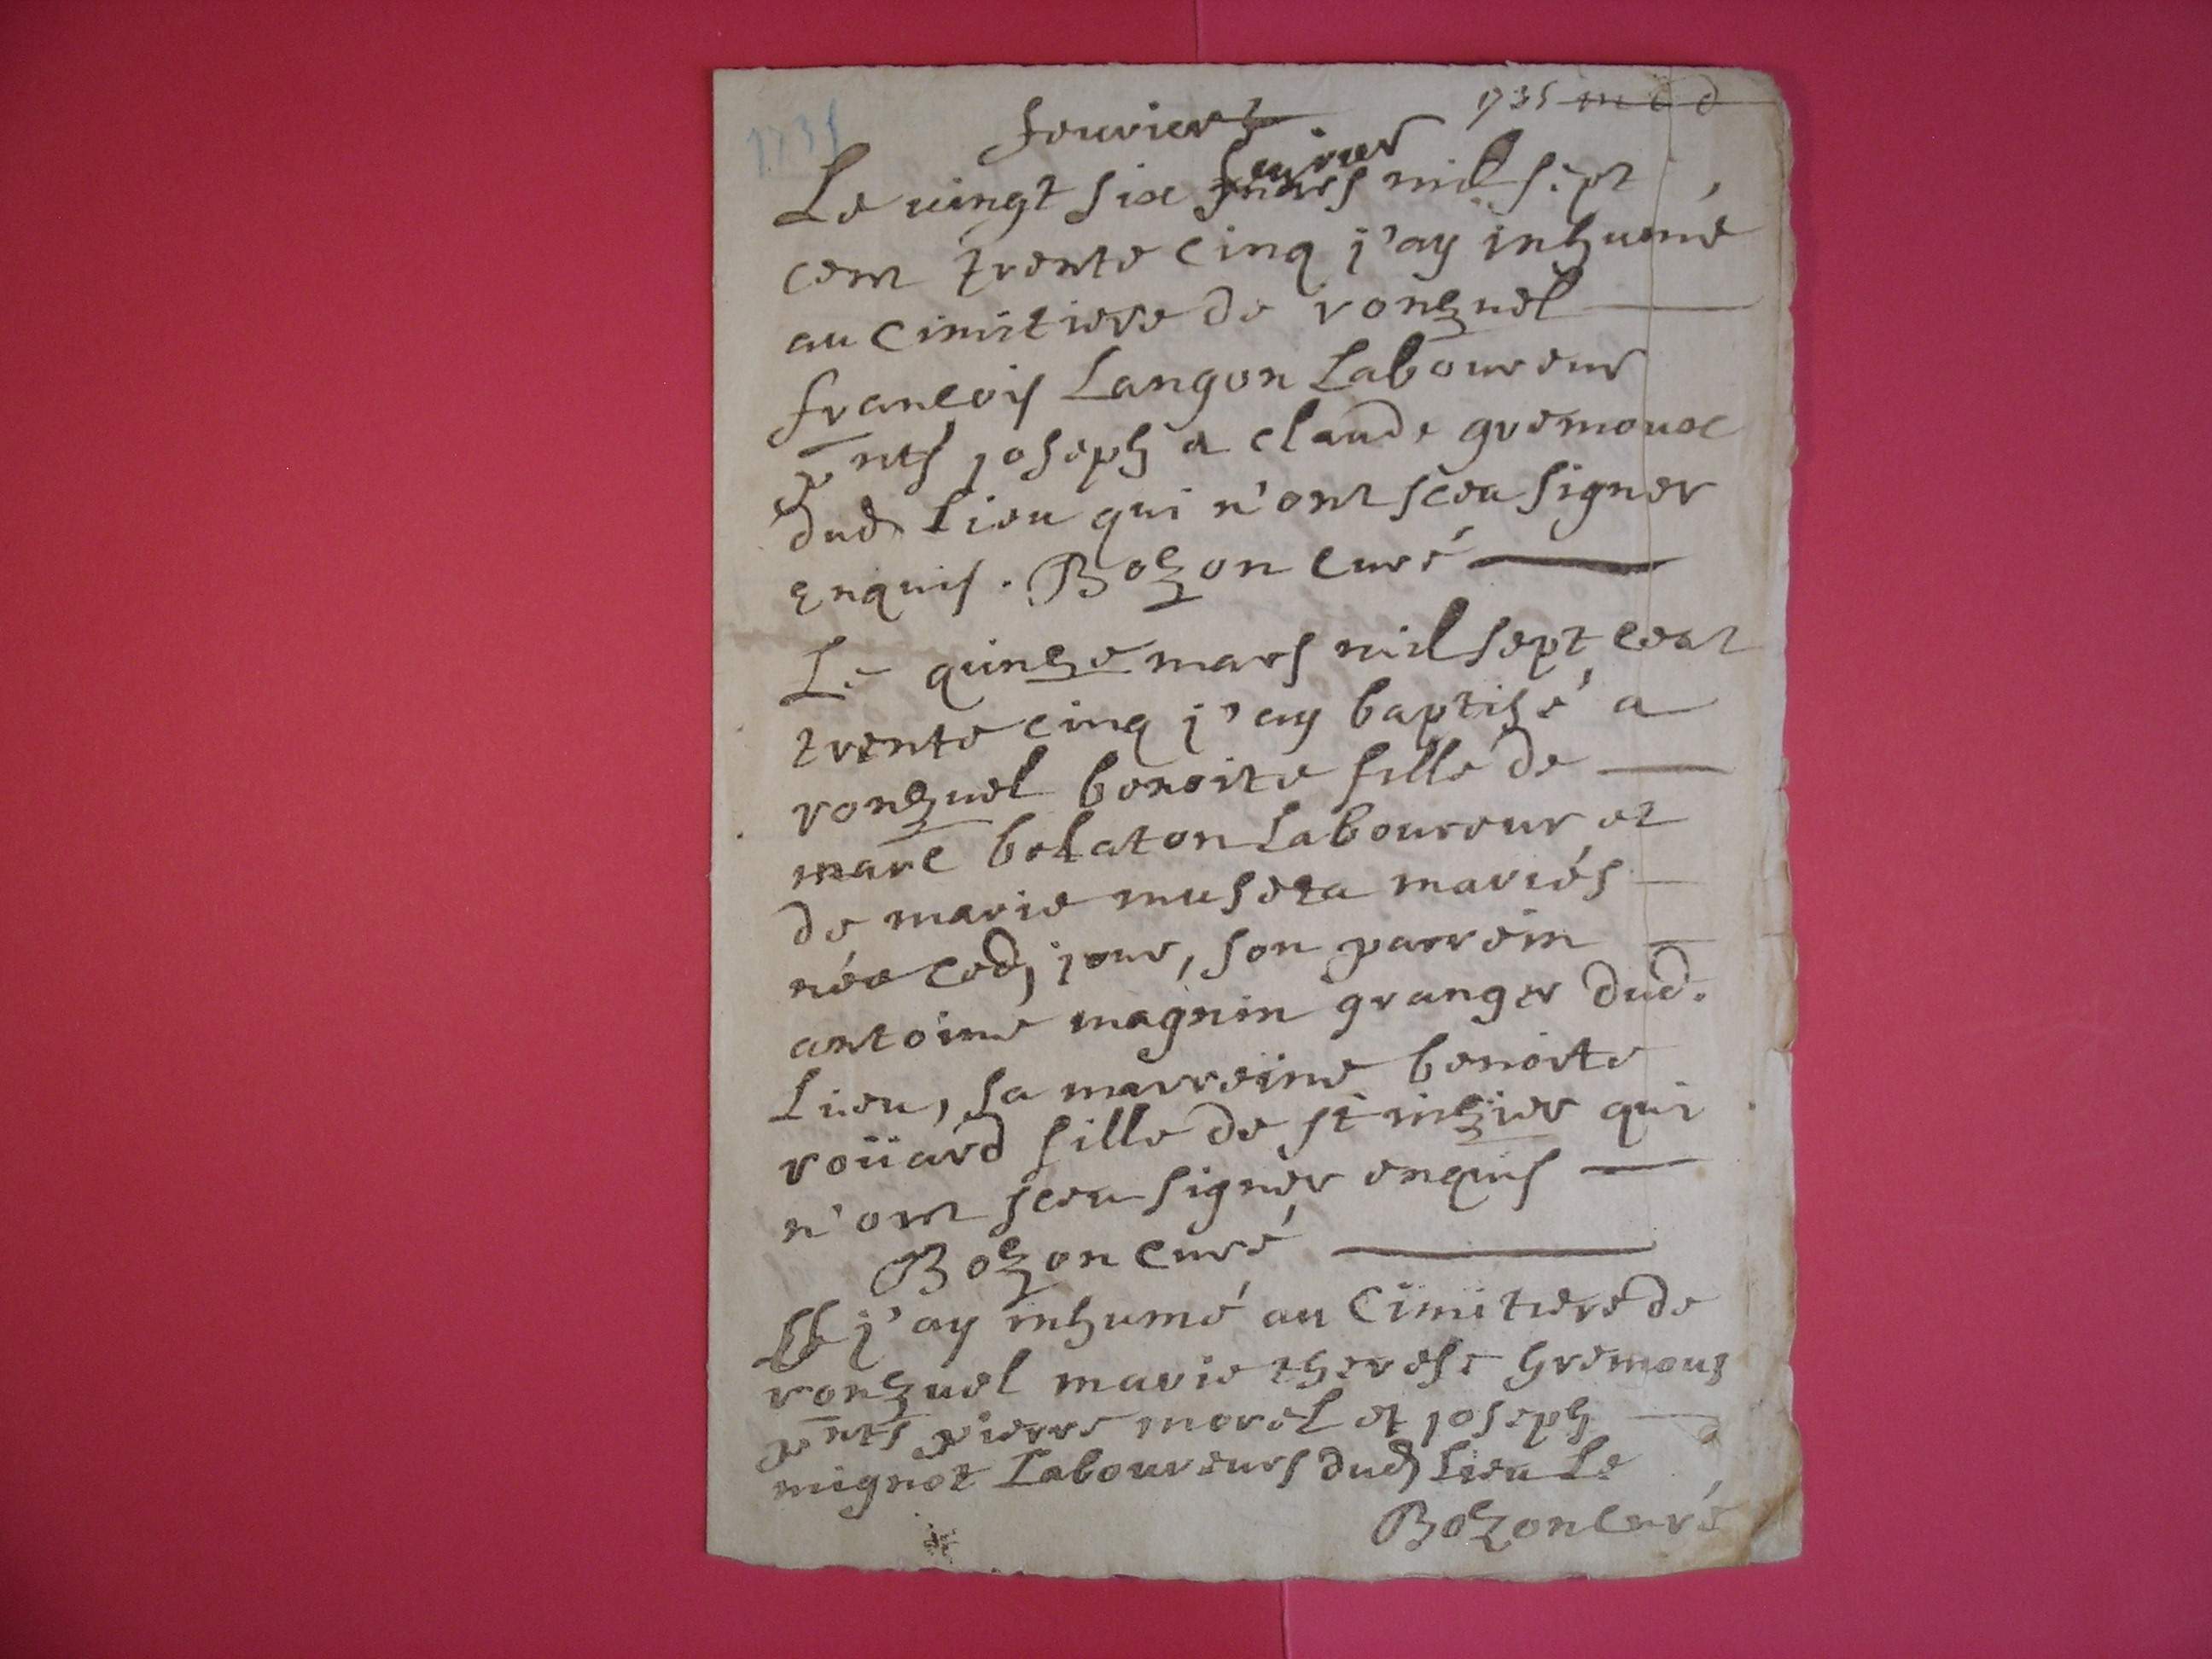 1735
1735
fevrier
Le vingt six fevrier mil sept
cent trente cinq j'ay inhumé
au cimitiere de ronzuel
francois Langon Laboureur
pnts joseph a claude gremoux
dud lieu qui n'ont sceu signer
enquis. Bozon curé
Le quinze mars mil sept cent
trente cinq j'ay baptisé a
ronzuel benoite fille de
marc belaton Laboureur et
de marie museta mariés
née ced, jour, son parrein
antoine magnin granger dud.
Lieu, sa marreine benoite
roüard fille de st nizier qui
n'ont sceu signer enquis
Bozon curé
j'ay inhumé au Cimitiere de
ronzuel marie therese Gremoux
pnts pierre morel et joseph
mignot Laboureurs dud lieu Le
Bozon curé